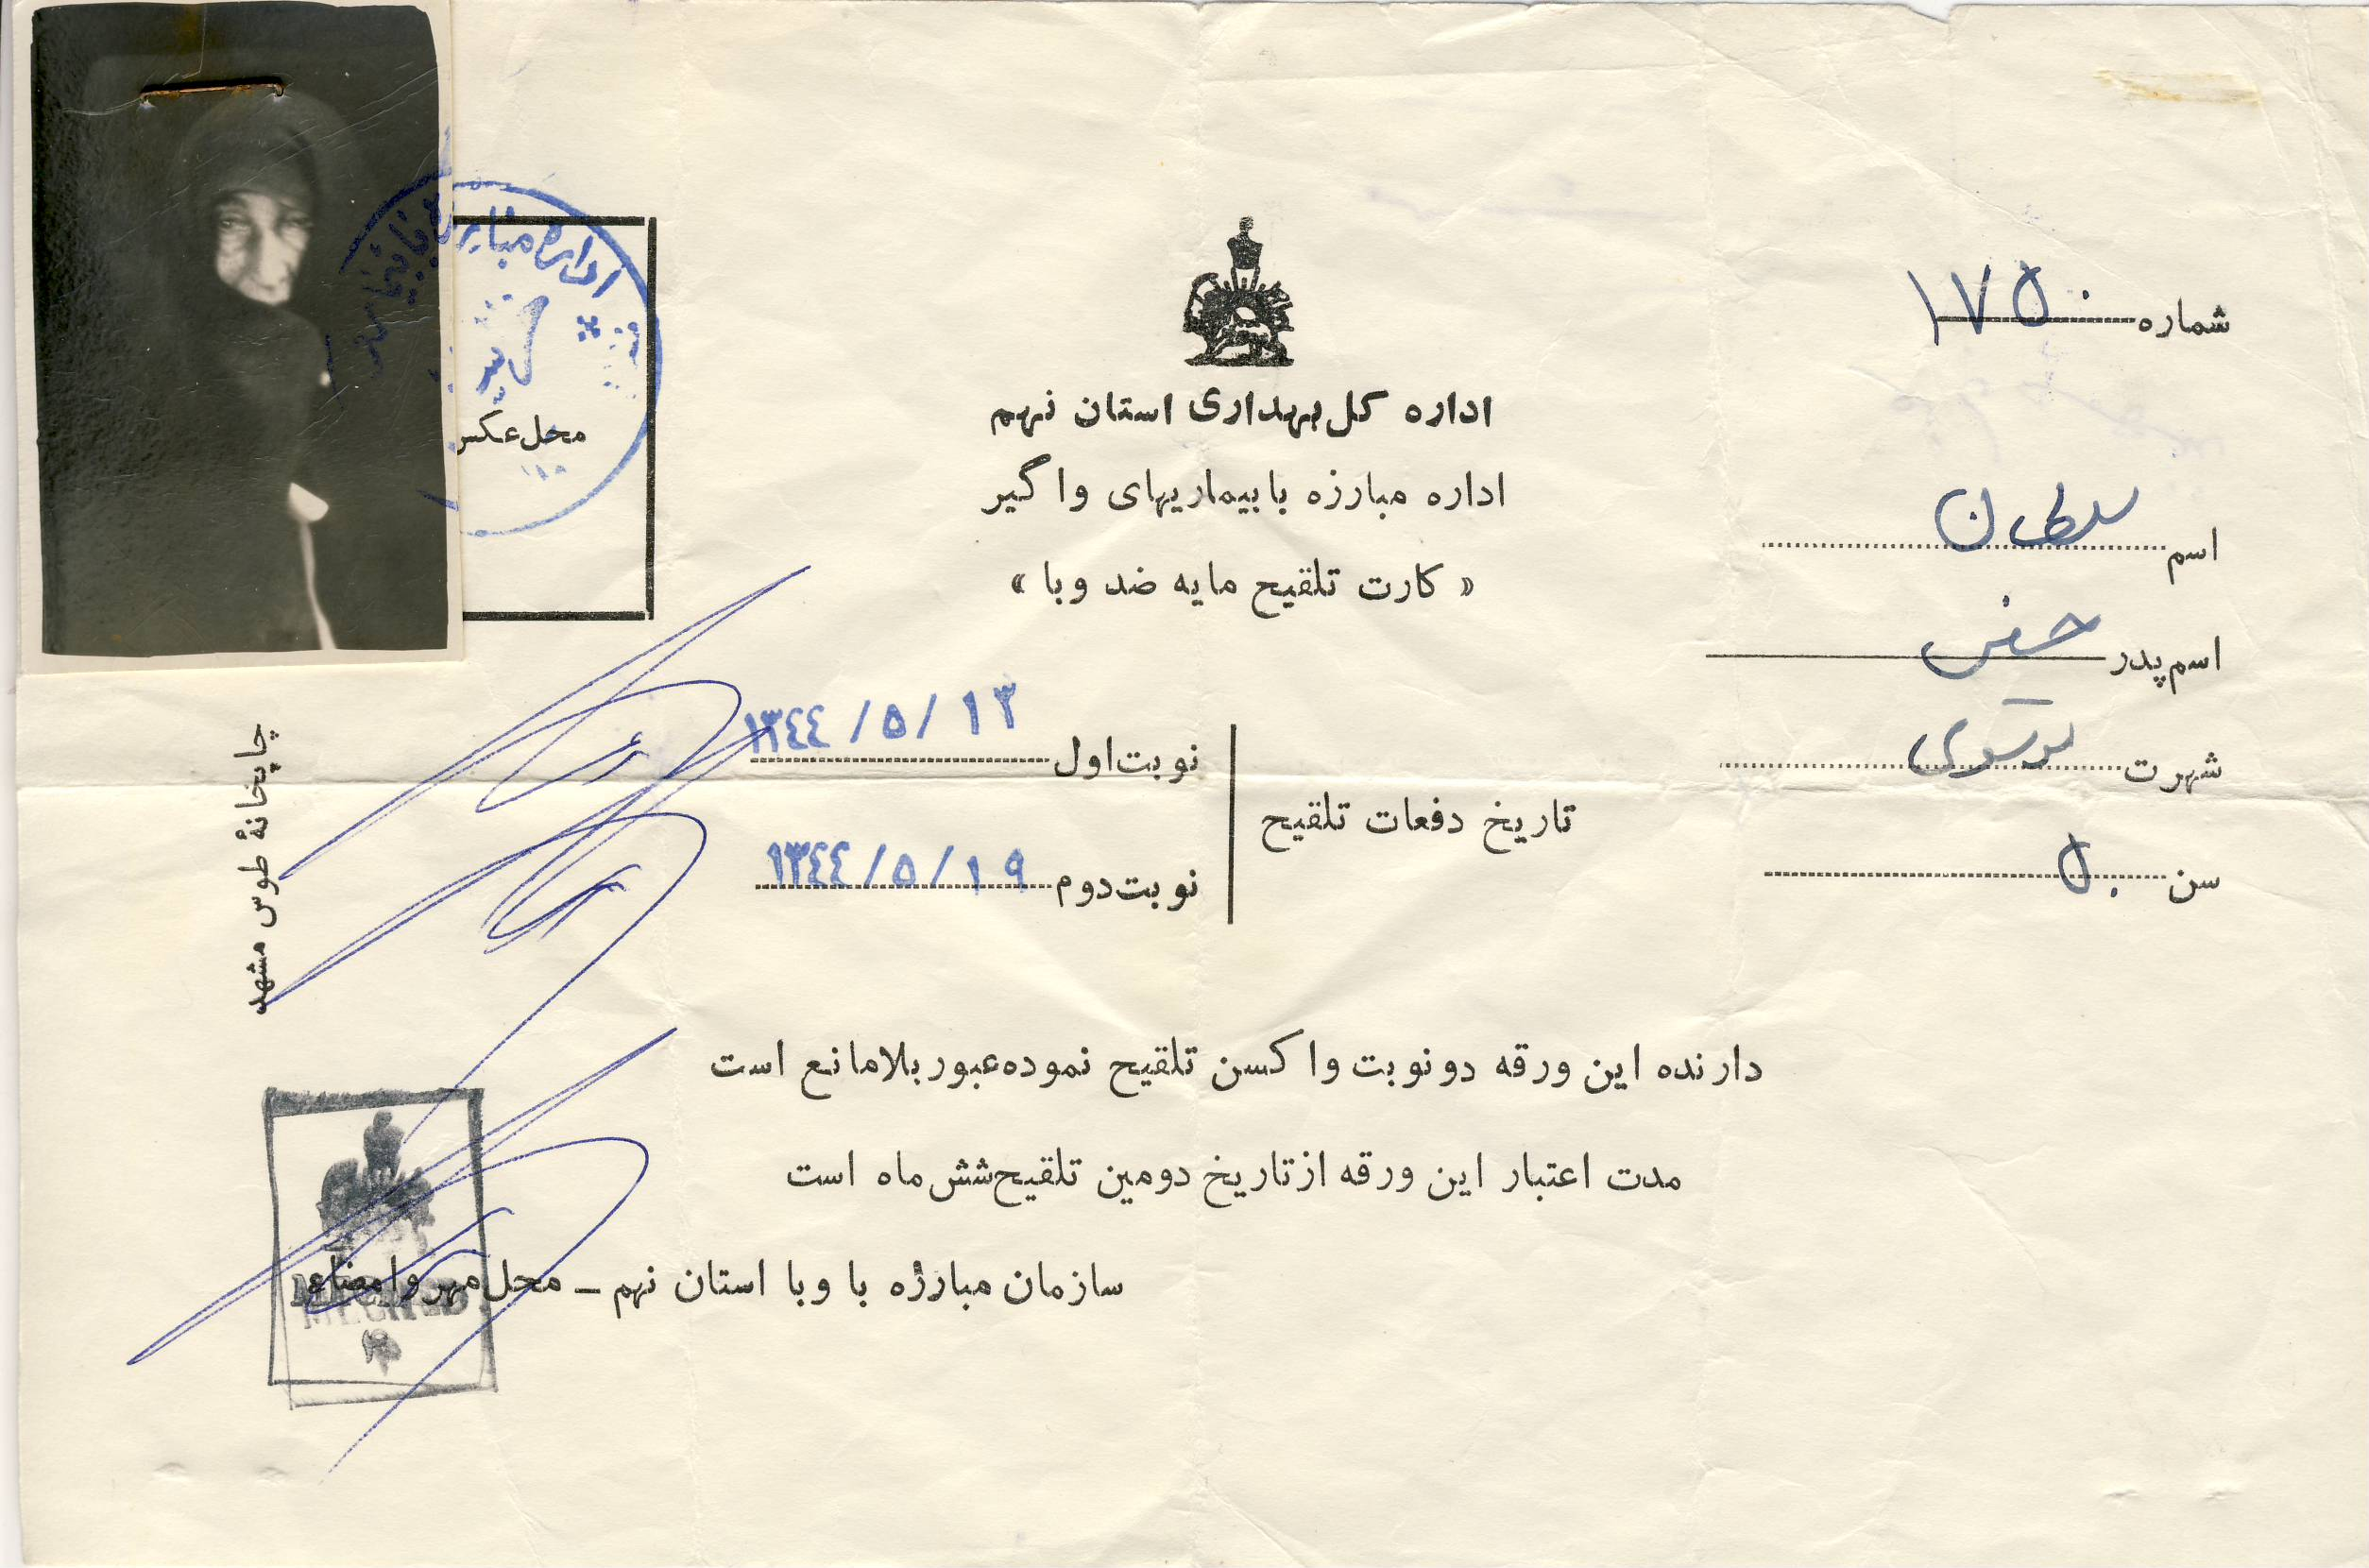 شماره ۱۷۵۰
اداره کل بهداری استان نهم
اداره مبارزه با بیماریهای واگیر
« کارت تلقیح مایه ضد وبا »
محل عکس
اسم سلطان
اسم پدر
شهرت
سن ۵۰
تاریخ دفعات تلقیح
نوبت اول ۱۳۴۴/۵/۱۳
نوبت دوم ۱۳۴۴/۵/۱۹
دارنده این ورقه دو نوبت واکسن تلقیح نموده عبور بلامانع است
مدت اعتبار این ورقه از تاریخ دومین تلقیح شش ماه است
سازمان مبارزه با وبا استان نهم – محل مهر و امضاء
چاپخانهٔ طوس مشهد